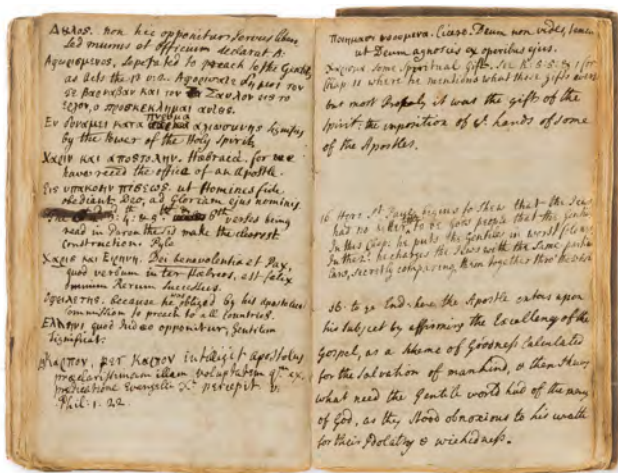 Δυλος. non hic opponitur servus libero
sed munus et officium declarat A:
Αφωρισμενος. Seperated to preach to the Gentiles
as Acts the 13 v: 2. Αφορισατε δη μοι τον
τε βαρναβαν και τον Σαυλον εις το
εργον, ο προσκεκλημαι αυτες.
πνευμα
Εν δυναμει κατα αγιωσυνης signifies
by the Power of the Holy Spirit
Χαριν και αποστολην. Hebraice. for we
have reced the office of an Apostle.
Εις υπακοην πιστεως. ut Homines fide
obediant Deo, ad Gloriam ejus nominis
The 4: & 5: 6th verses being
read in Parenthesis make the clearest
construction: Pyle
Χαρις και Ειρηνη. Dei benevolentia et Pax,
quod verbum inter Hebreos, est felix
Rerum successus.
Οφειλετης. because he was obliged by his apostolic
commission to preach to all Countries.
Ελληνι, quod Iudæo opponitur, Gentilem
significat:
Καρπον, per καρπον intelligit Apostolus
præclarissimam illam voluptatem qm. ex
predicatione Evangelii Xti percepit v.
Phil: 1. 22.
ποιημασι νοουμενα. Cicero. Deum non vides, tamen
ut Deum agnoscis ex operibus ejus.
Χαρισμα some Spiritual gift. See
Chap 11 where he mentions what those gifts were
but most Properly it was the gift of the
Spirit: the imposition of ye hands of some
of the Apostles.
16 Here St Paul begins to shew that the Jews
had no better to be God's people than the Gentiles
In this Chap: he puts the Gentiles in worst
In the 2: he charges the Jews with the same
Laws, secretly comparing them together thro' the whole
16. to ye End. here the Apostle enters upon
his subject by affirming the Excellency of the
Gospel, as a scheme of Goodness calculated
for the salvation of mankind, & then shews
what need the Gentile world had of the mercy
of God, as they stood obnoxious to his wrath
for their Idolatry & wickedness.